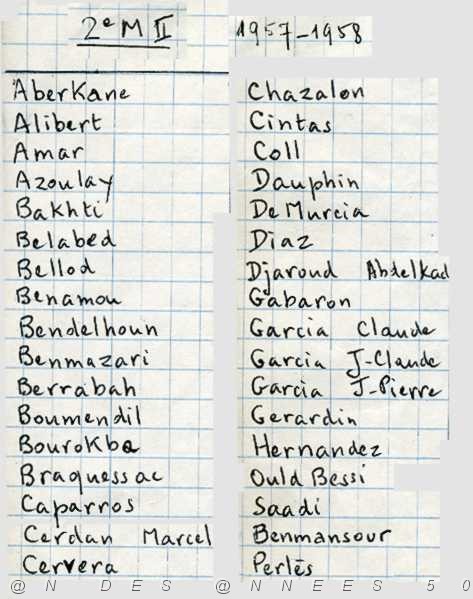 2e M II 1957-1958
Aberkane
Alibert
Amar
Azoulay
Bakhti
Belabed
Bellod
Benamou
Bendelhoun
Benmazari
Berrabah
Boumendil
Bourokba
Braquessac
Caparros
Cerdan Marcel
Cervera
Chazalon
Cintas
Coll
Dauphin
De Murcia
Diaz
Djaroud Abdelkad
Gabaron
Garcia Claude
Garcia J-Claude
Garcia J-Pierre
Gerardin
Hernandez
Ould Bessi
Saadi
Benmansour
Perlès
@ N D E S @ N N E E S 5 0